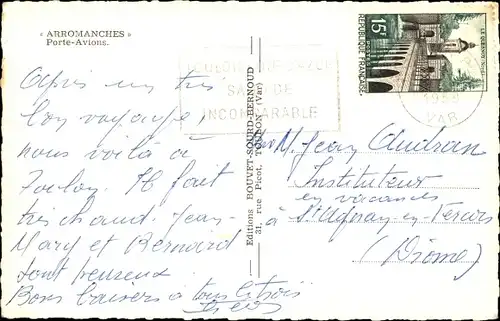 « ARROMANCHES »
Porte-Avions.
Après un très
bon voyage,
nous voilà à
Toulon. Il fait
très chaud. Jean-
Mary et Bernard
sont heureux
Bons baisers à tous trois
Editions BOUVET-SOURD-BERNOUD
31, rue Picot, TOULON (Var)
SA
DE
INCOMPARABLE
15F
POSTES
REPUBLIQUE FRANÇAISE
LE QUESNOY
VAR
M. Jean Audran
Instituteur
en vacances
à St Agnan-en-Vercors
(Drôme)